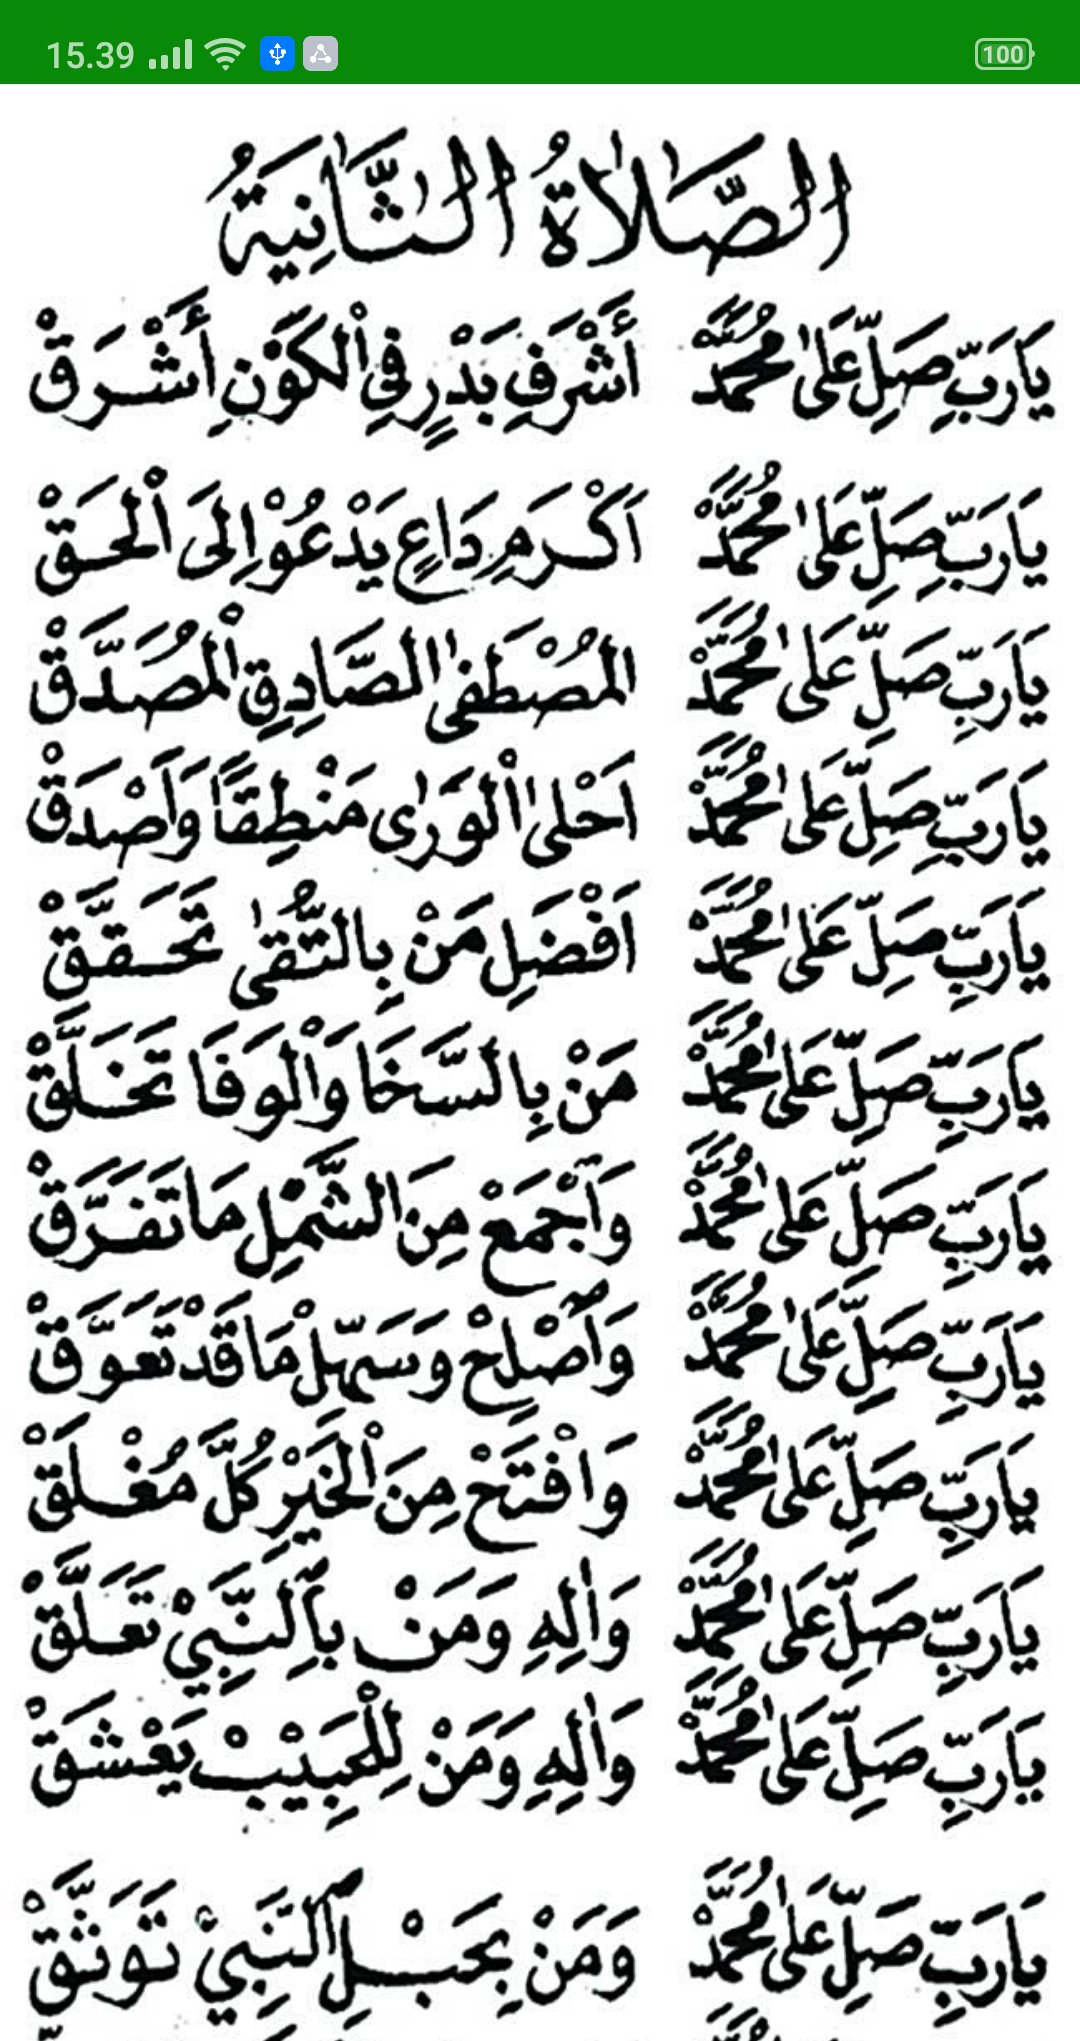 15.39
100
الصَّلَاةُ الثَّانِيَةُ
يَارَبِّ صَلِّ عَلَىٰ مُحَمَّدْ أَشْرَفِ بَدْرٍ فِي الْكَوْنِ أَشْرَقْ
يَارَبِّ صَلِّ عَلَىٰ مُحَمَّدْ اَكْرَمِ دَاعٍ يَدْعُوْ اِلَى الْحَقْ
يَارَبِّ صَلِّ عَلَىٰ مُحَمَّدْ الْمُصْطَفٰى الصَّادِقِ الْمُصَدَّقْ
يَارَبِّ صَلِّ عَلَىٰ مُحَمَّدْ اَحْلٰى الْوَرٰى مَنْطِقًا وَاَصْدَقْ
يَارَبِّ صَلِّ عَلَىٰ مُحَمَّدْ اَفْضَلِ مَنْ بِالتُّقٰى تَحَقَّقْ
يَارَبِّ صَلِّ عَلَىٰ مُحَمَّدْ مَنْ بِالسَّخَا وَالْوَفَا تَخَلَّقْ
يَارَبِّ صَلِّ عَلَىٰ مُحَمَّدْ وَاَجْمَعْ مِنَ الشَّمْلِ مَا تَفَرَّقْ
يَارَبِّ صَلِّ عَلَىٰ مُحَمَّدْ وَاَصْلِحْ وَسَهِّلْ مَا قَدْ تَعَوَّقْ
يَارَبِّ صَلِّ عَلَىٰ مُحَمَّدْ وَافْتَحْ مِنَ الْخَيْرِ كُلَّ مُغْلَقْ
يَارَبِّ صَلِّ عَلَىٰ مُحَمَّدْ وَاٰلِهِ وَمَنْ بِالنَّبِيْ تَعَلَّقْ
يَارَبِّ صَلِّ عَلَىٰ مُحَمَّدْ وَاٰلِهِ وَمَنْ لِلْحَبِيْبْ يَعْشَقْ
يَارَبِّ صَلِّ عَلَىٰ مُحَمَّدْ وَمَنْ بِحَبْلِ النَّبِيْ تَوَثَّقْ